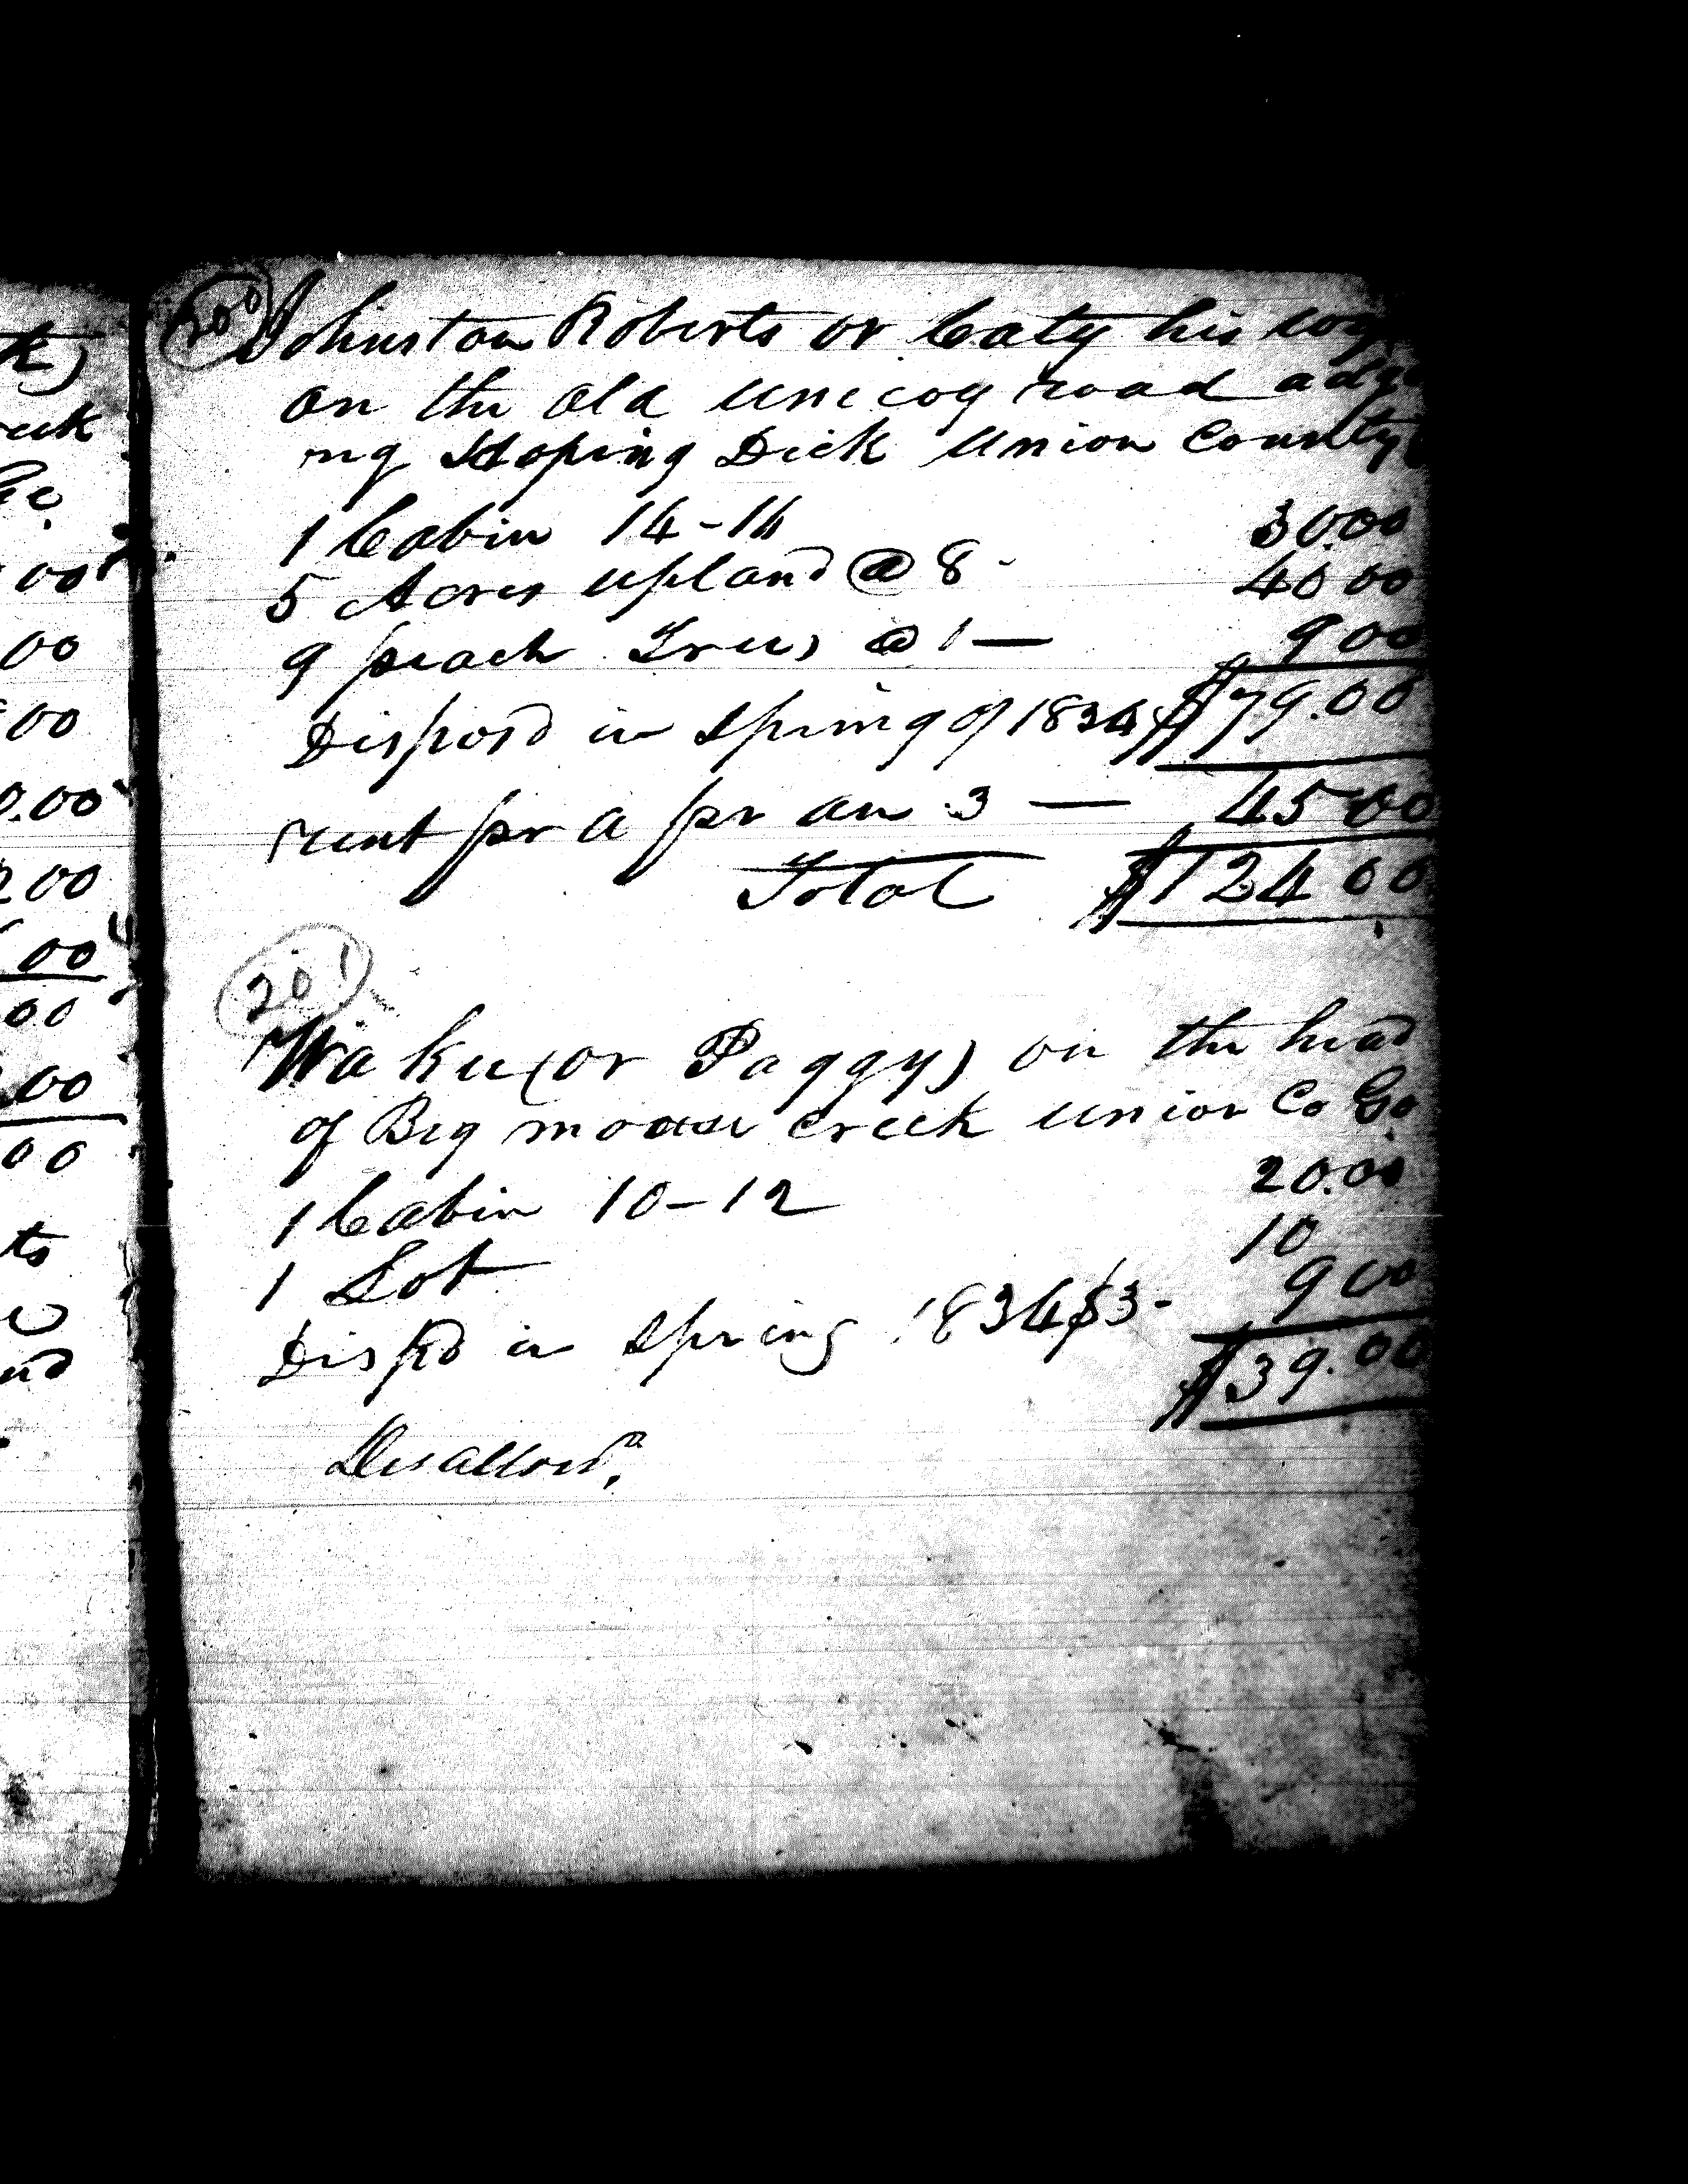 200
Johnston Roberts or Caty his
on the old Unecoy road
ing Stoping Dick Union County
1 Cabin 14-14 30.00
5 Acres upland @ 8- 40 00
9 peach Trees @ 1 — 9 00
Disposd in Spring of 1834 $79.00
rent pr a pr an 3 — 45 00
Total $124 00
201
(or Paggy) on the head
of Big creek union Co Ga
1 Cabin 10-12 20.00
1 Lot 10
Dispd in Spring 1834 $3- 9 00
$39.00
Disallowd.
00
00
00
0.00
00
00
00
00
00
ts
nd